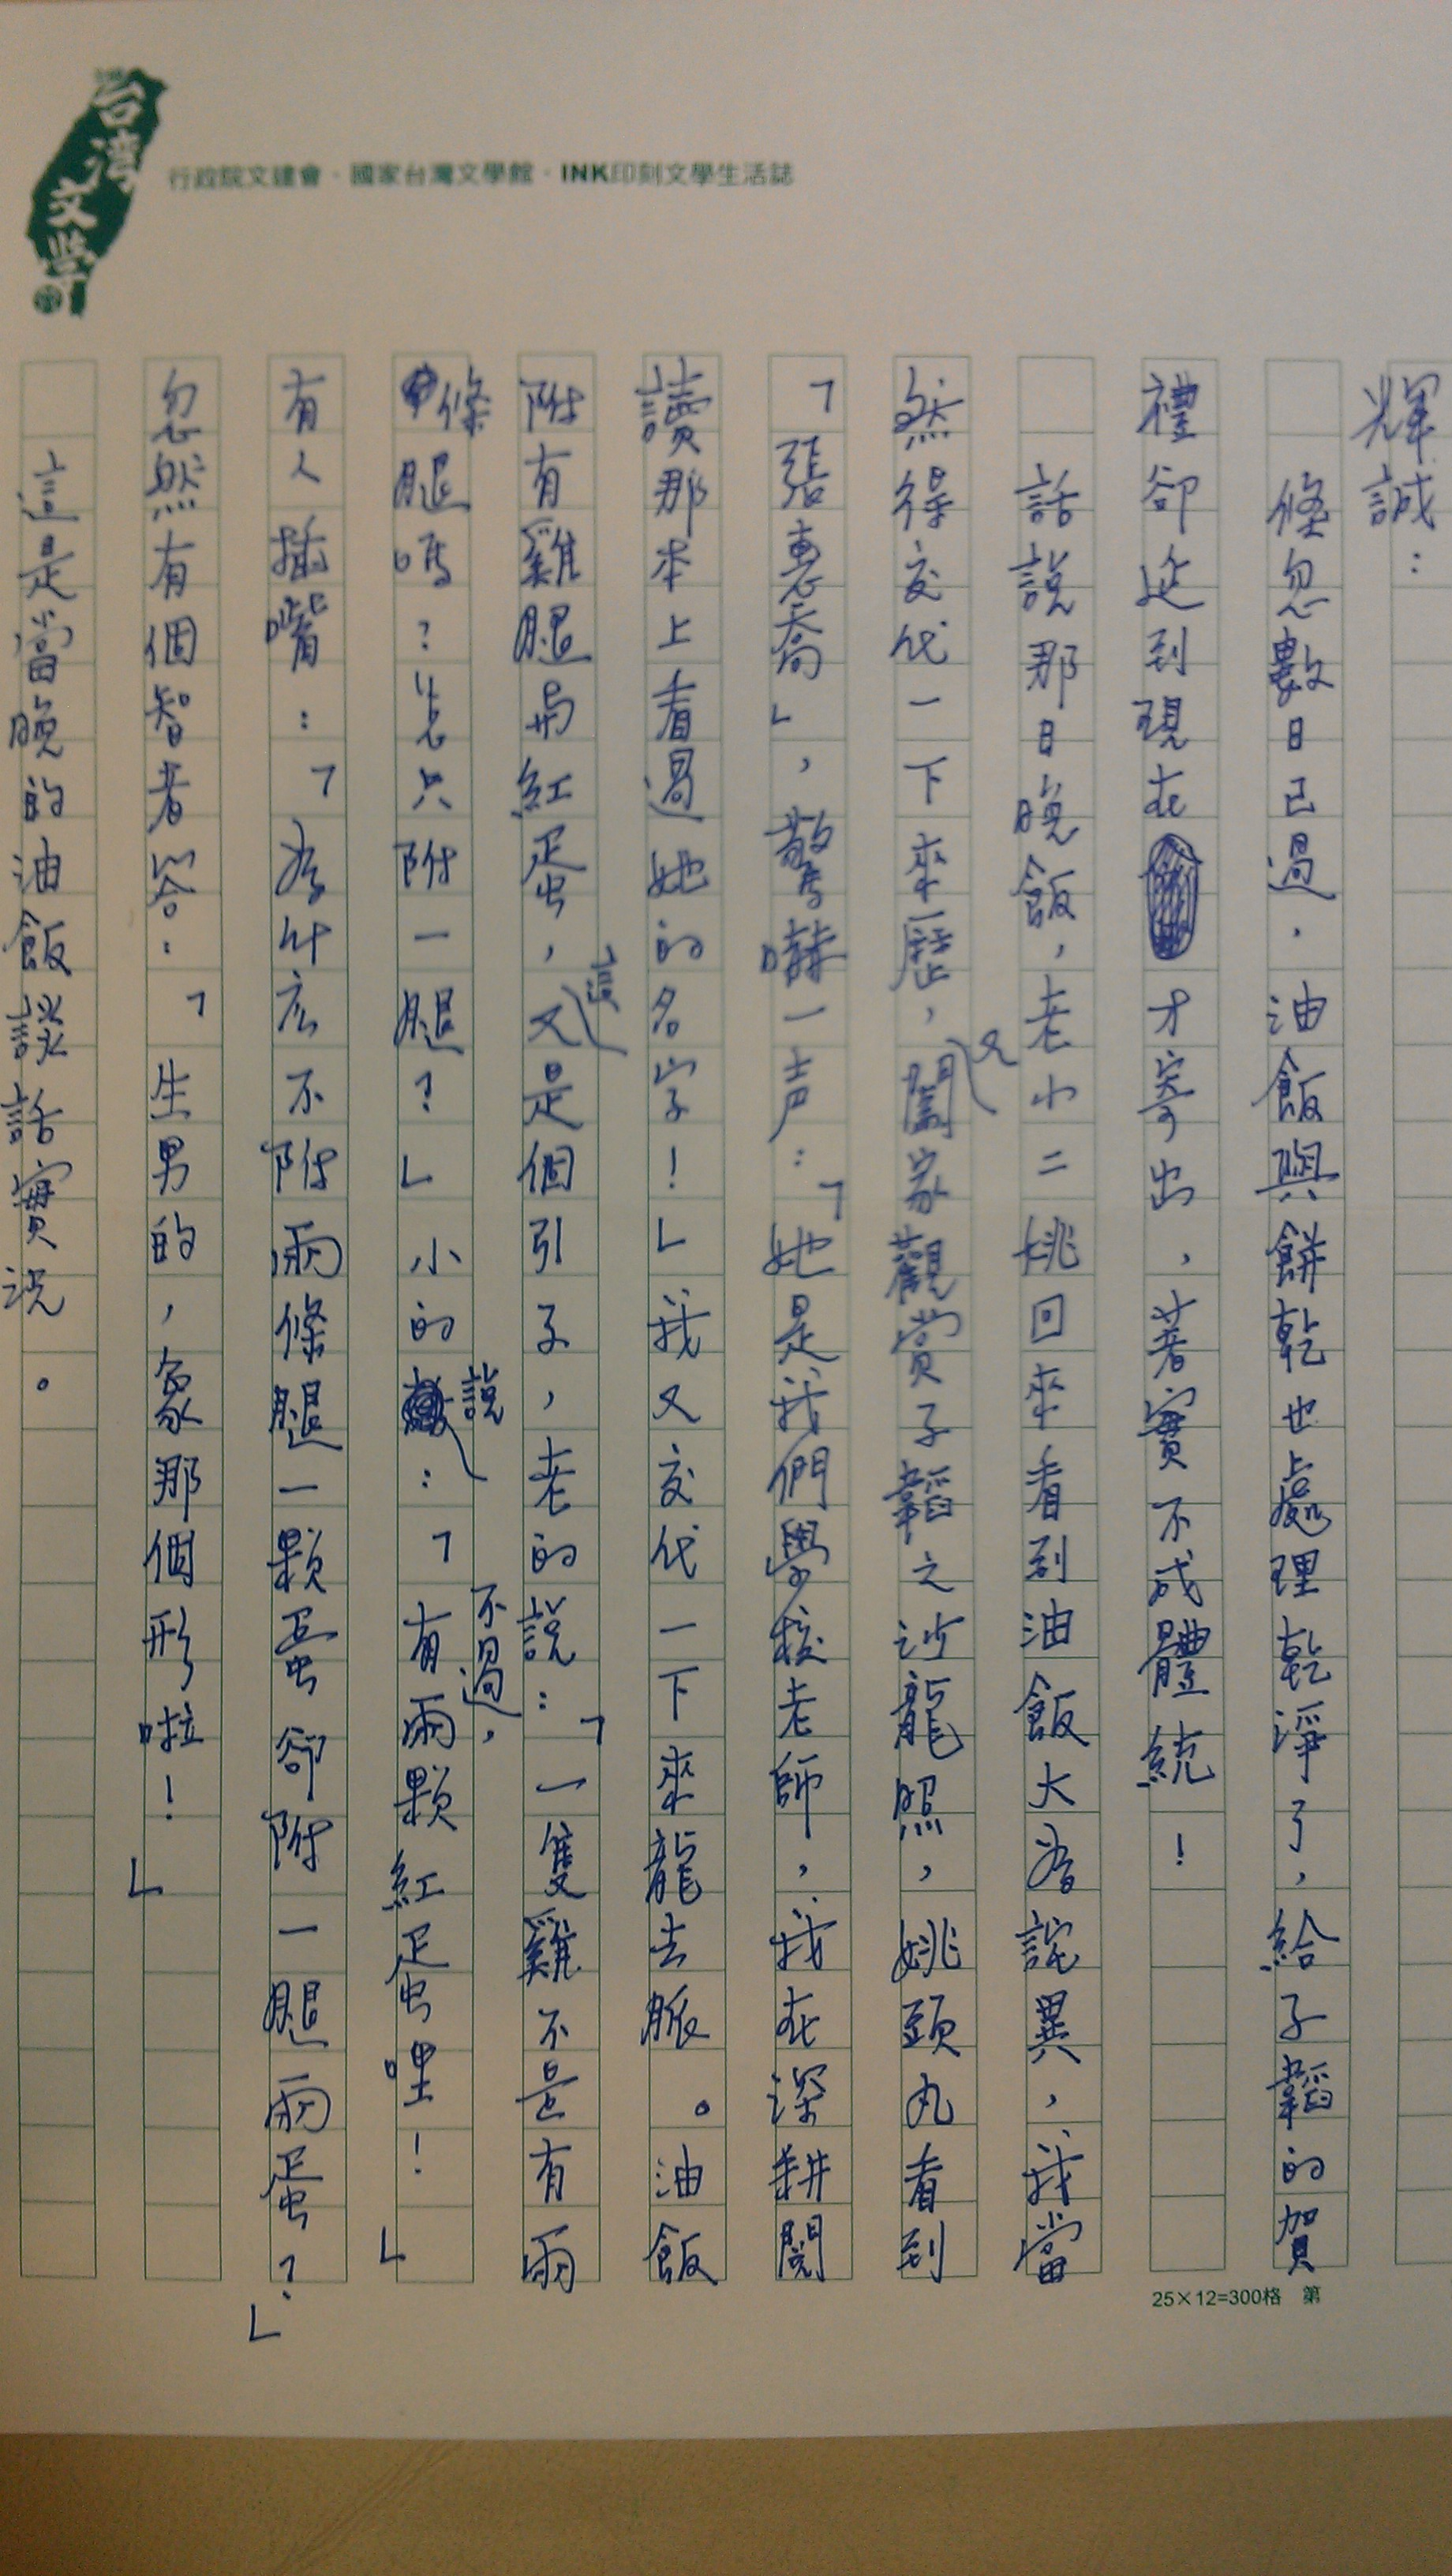 台灣文學
行政院文建會．國家台灣文學館．INK印刻文學生活誌
輝誠：
倏忽數日已過，油飯與餅乾也處理乾淨了，給子韜的賀
禮卻延到現在才寄出，著實不成體統！
話說那日晚飯，老小二姚回來看到油飯大為詫異，我當
然得交代一下來歷，又闔家觀賞子韜之沙龍照，姚頭丸看到
「張惠喬」，驚嚇一声：「她是我們學校老師，我在深耕閱
讀那本上看過她的名字！」我又交代一下來龍去脈。油飯
附有雞腿与紅蛋，這又是個引子，老的說：「一隻雞不是有兩
條腿嗎？怎只附一腿？」小的說：「不過，有兩顆紅蛋哩！」
有人插嘴：「為什広不附兩條腿一顆蛋卻附一腿兩蛋？」
忽然有個智者答：「生男的，象那個形啦！」
這是當晚的油飯談話實況。
25×12=300格　第